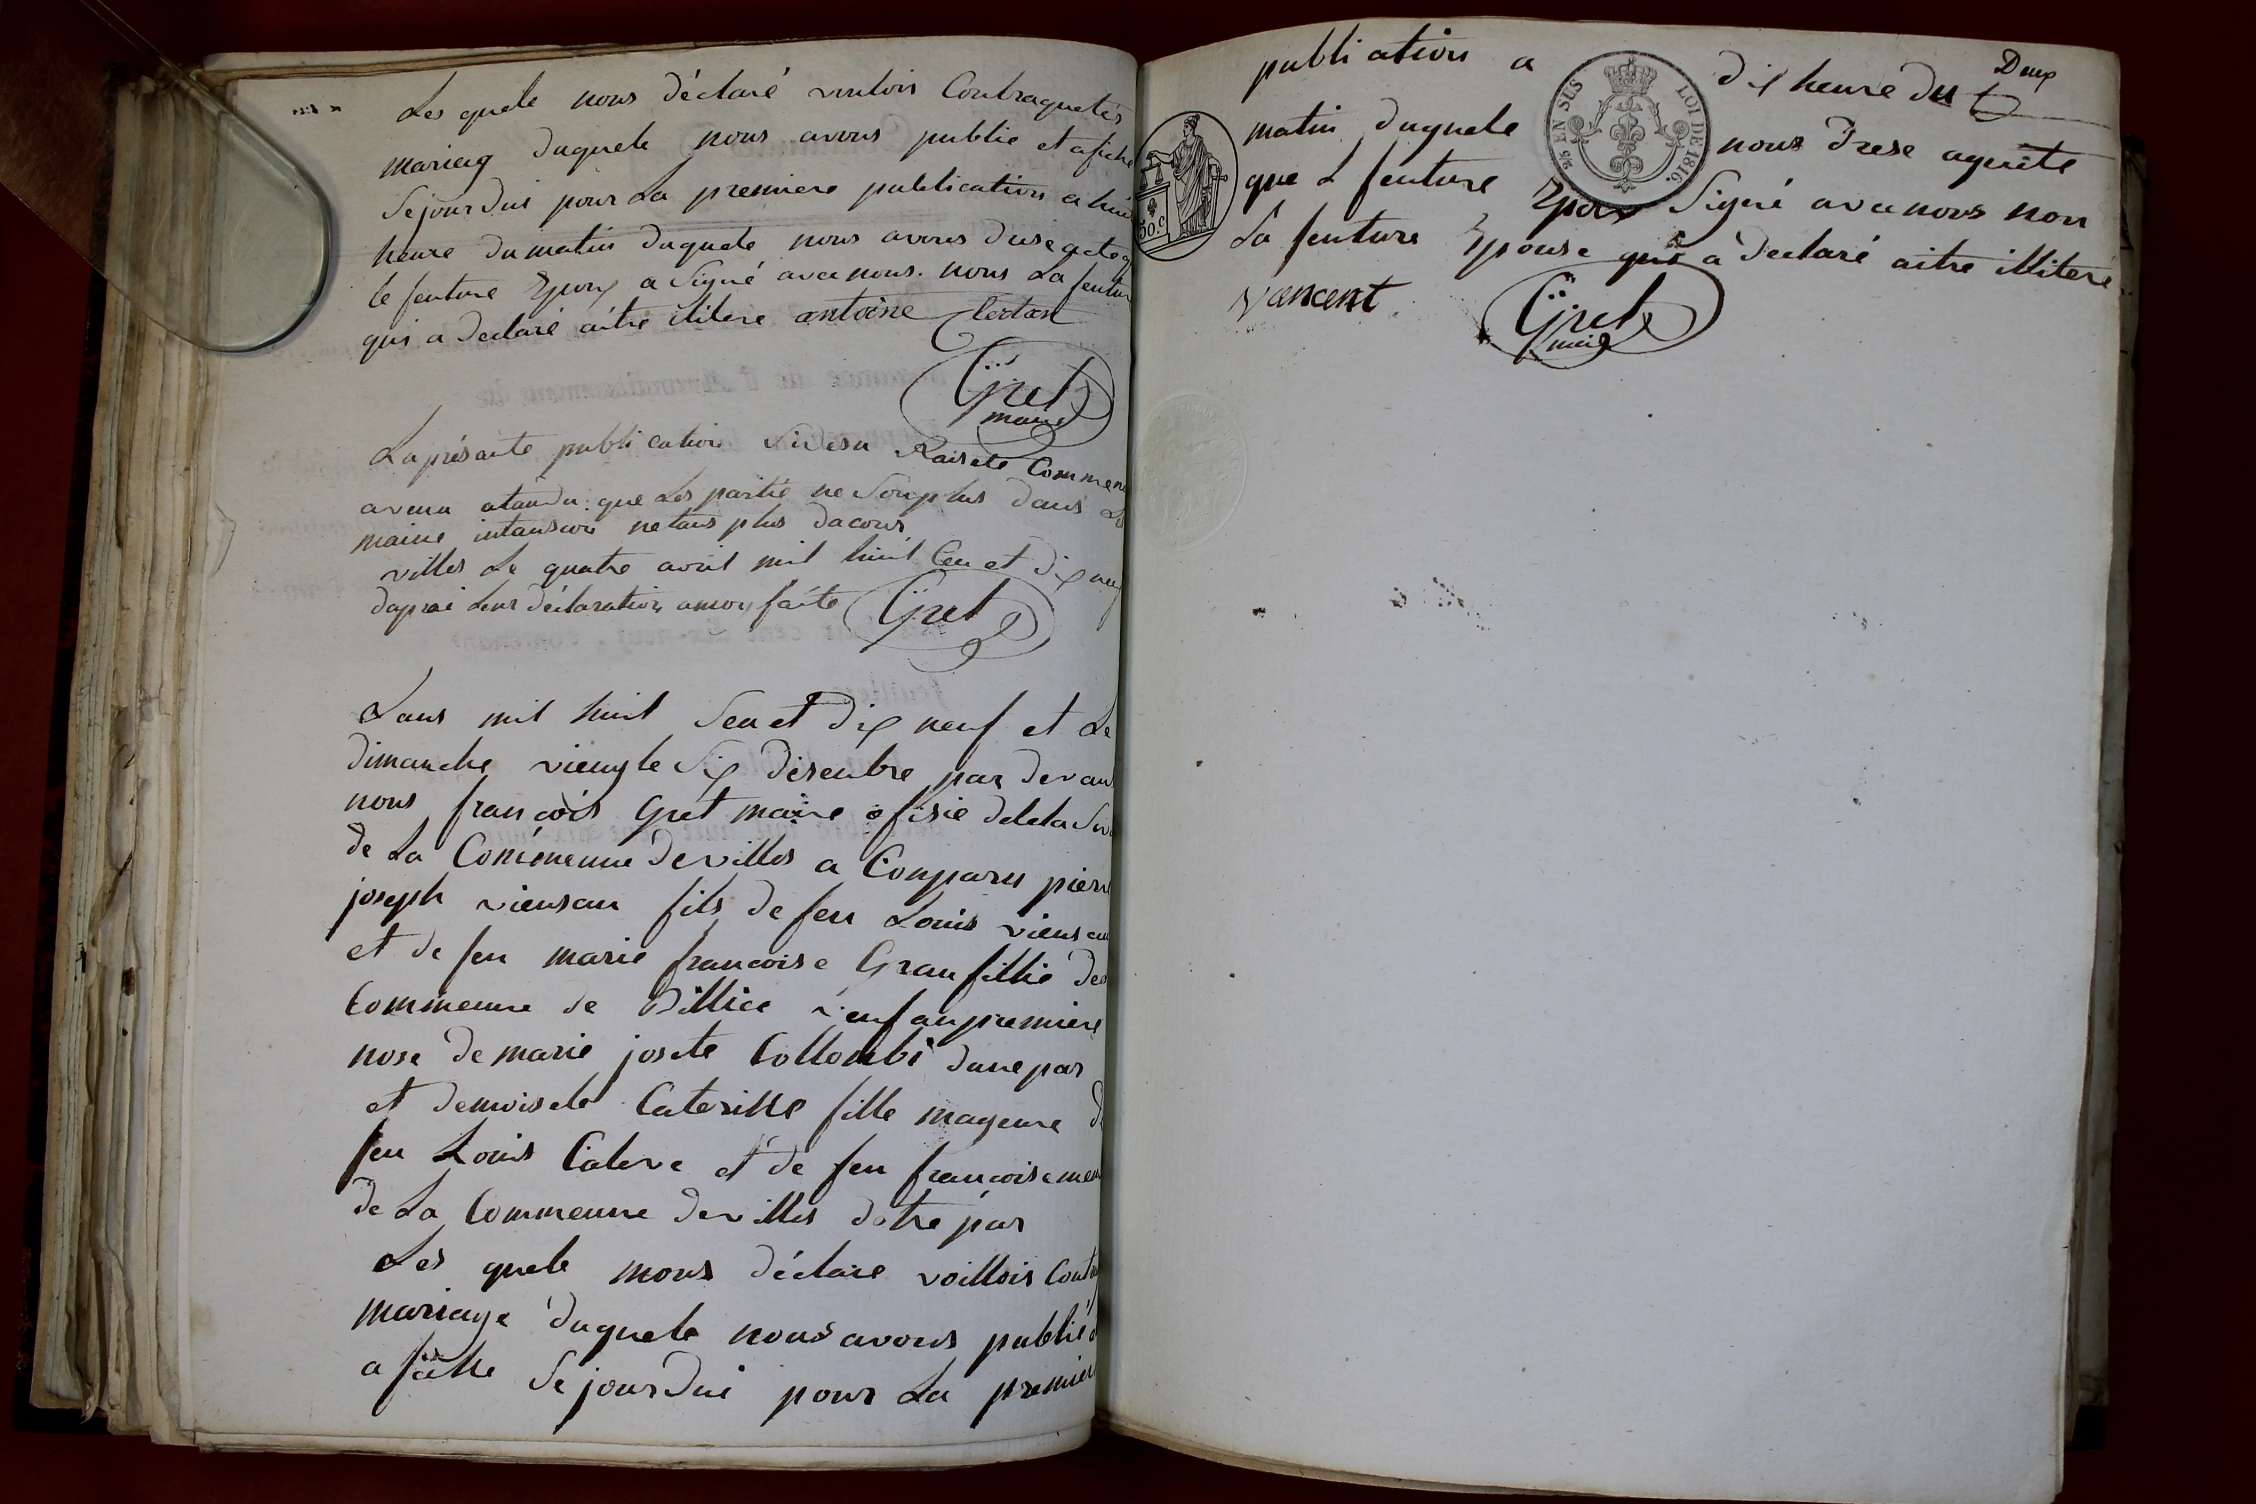 Les quele nous déclaré voulois Contraquetés
mariag duquele nous avons publie et afiche
Sejourdui pour La premiere publication a hui
heure du matin duquele nous avons drese acte q
le feuture Epoux a Signé avec nous. nous La feuture
qui a declaré aitre ilitere antoine
Gret
maire
La présante publication Comme non
avenu atandu que Les partie ne Son plus dans La
maime intansion netans plus dacors
villes Le quatre avril mil huit Cen et dix neuf
daprai Leur déclaration amoy faite
Gret
Lans mil huit Sen et dix neuf et Le
dimanche viengte Six désenbre par devan
nous francois Gret maire ofisie deleta Siv
de La Comenenne de villes a Conparu pierre
joseph viensan fils de feu Louis viensan
et de feu marie francoise Granfillie de
Commenne de Billice veuf an premiere
nose de marie josete Collonbi dune par
et demoisele Caterine fille mageure d
feu Louis Caleve et de feu francoise
de La Commenne de villes dotre par
Les quele nous déclare voillois Cont
mariage duquele nous avons publié
afiche Sejourdui pour La premier
publication a dix heure du
Deux
matin duquele nous drese aquete
que L feuture Epoux Signé avec nous non
La feuture Epouse qui a déclaré aitre illiteré
vencent
Gret
maire
25 EN SUS
LOI DE 1816.
50. C